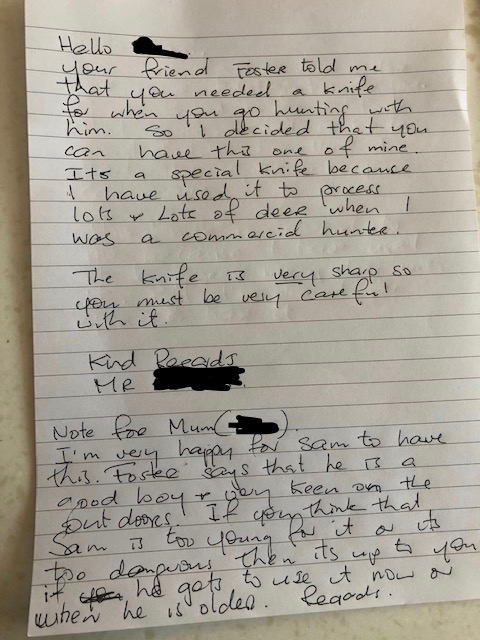 Hello
your friend Foster told me
that you needed a knife
for when you go hunting with
him. So I decided that you
can have this one of mine.
Its a special knife because
I have used it to process
lots & Lots of deer when I
was a commercial hunter.
The knife is very sharp so
you must be very careful
with it.
Kind Regards
MR
Note for Mum ( ).
I'm very happy for Sam to have
this. Foster says that he is a
good boy & very keen on the
out doors. If you think that
Sam is too young for it or its
too dangerous then its up to you
if he gets to use it now or
when he is older. Regards.